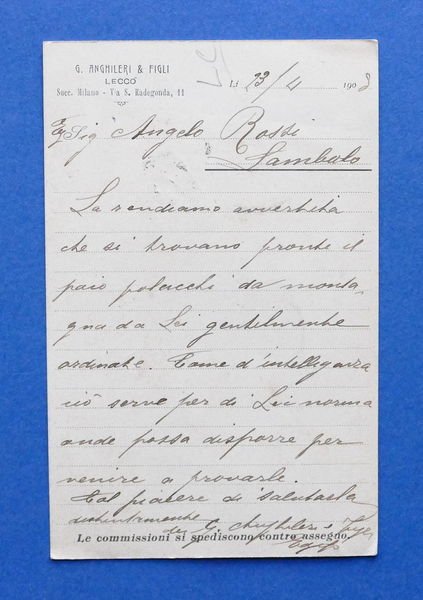 G. ANGHILERI & FIGLI
LECCO
Succ. Milano - Via S. Radegonda, 11
Li 23/4 1908
Eg Sig Angelo Rossi
Lambolo
La rendiamo avvertita
che si trovano pronte il
paio polacchi da monta-
gna da Lei gentilmente
ordinate. Come d'intelligenza
ciò serve per di Lei norma
onde possa disporre per
venire a provarle.
Col piacere di salutarla
distintamente
G. Anghileri & Figli
Le commissioni si spediscono contro assegno.